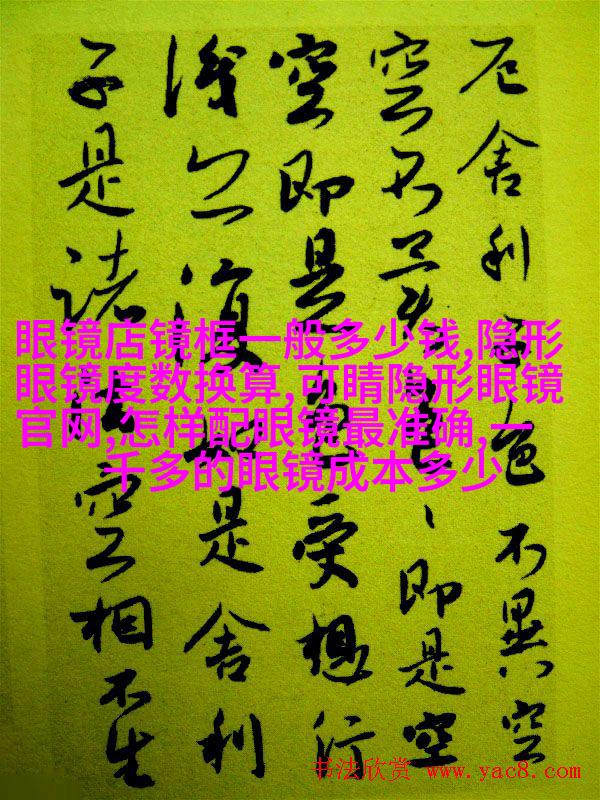 厄舍利子色不異空
空不異色、即是空
空即是色受想行
識亦復如是舍利
子是諸法空相不生
眼镜店镜框一般多少钱,隐形
眼镜度数换算,可睛隐形眼镜
官网,怎样配眼镜最准确,一
千多的眼镜成本多少
书法欣赏 www.yac8.com